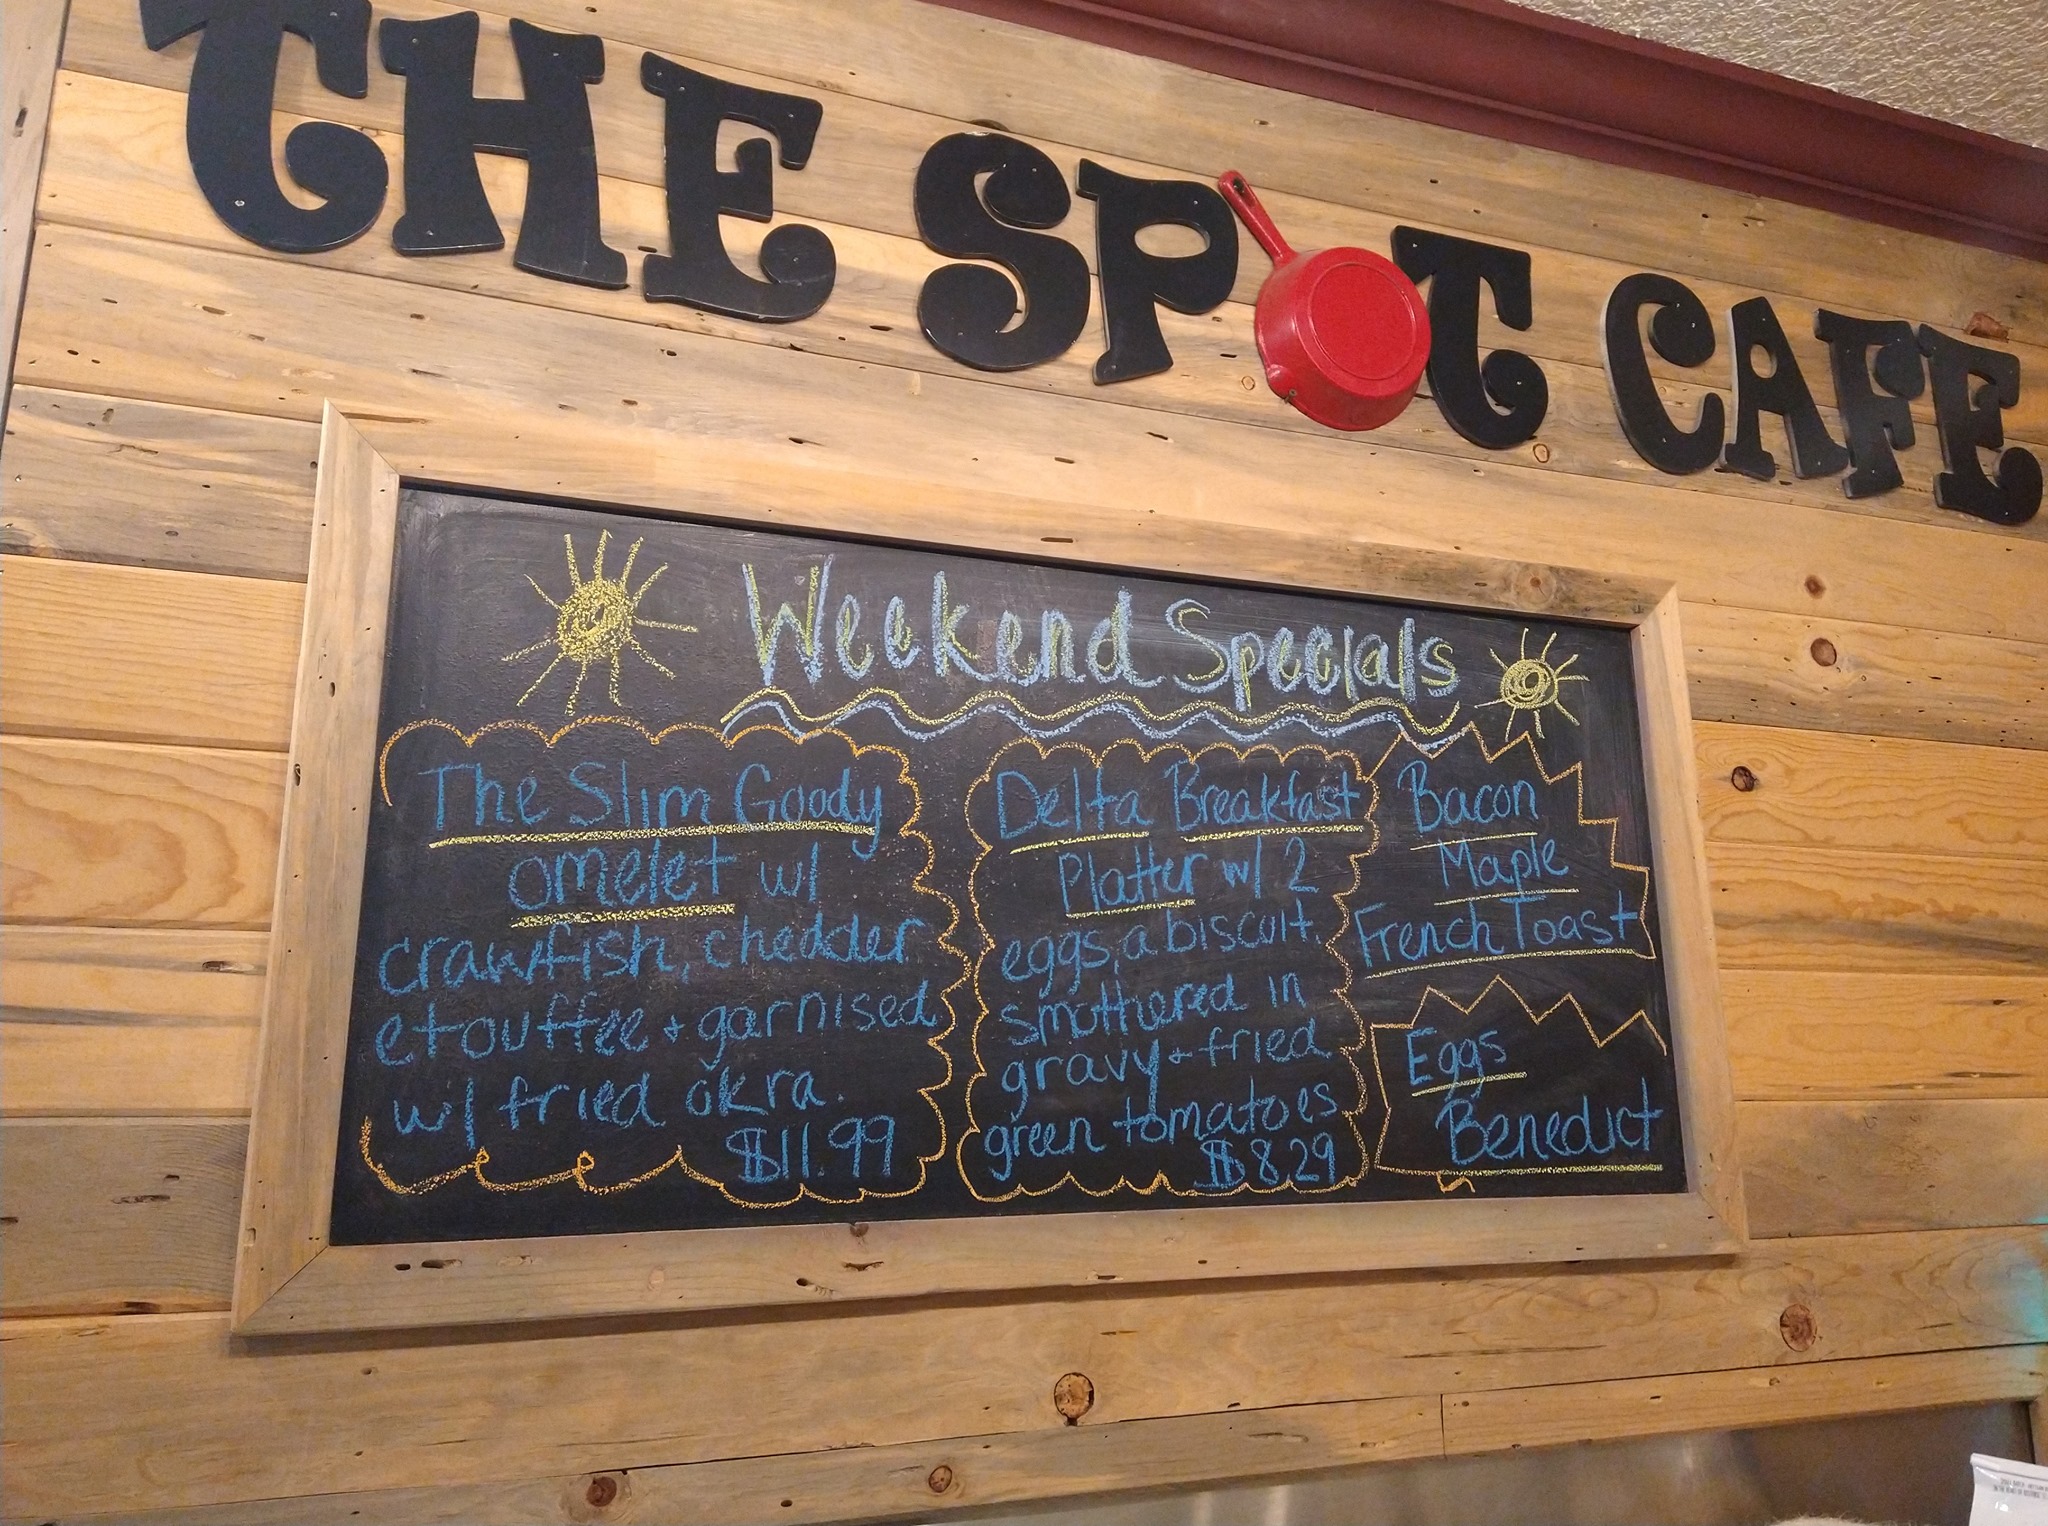 THE SPOT CAFE
Weekend Specials
The Slim Goody
omelet w/
crawfish, chedder
etouffee + garnised
w/ fried okra.
$11.99
Delta Breakfast
Platter w/ 2
eggs, a biscuit.
smothered in
gravy + fried
green tomatoes
$8.29
Bacon
Maple
French Toast
Eggs
Benedict